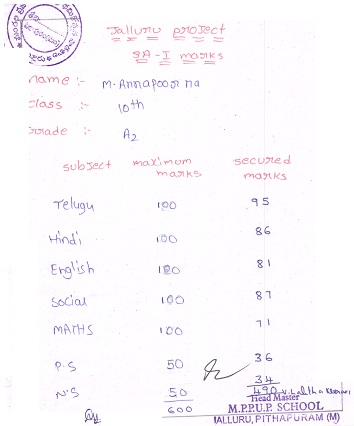 Jalluru project
SA-I marks
name :- M. Annapoorna
class :- 10th
Grade :- A2
subject maximum marks secured marks
Telugu 100 95
Hindi 100 86
English 100 81
Social 100 87
MATHS 100 71
P.S 50 36
N.S 50 34
600 490
Head Master
M.P.P.U.P. SCHOOL
JALLURU, PITHAPURAM (M)